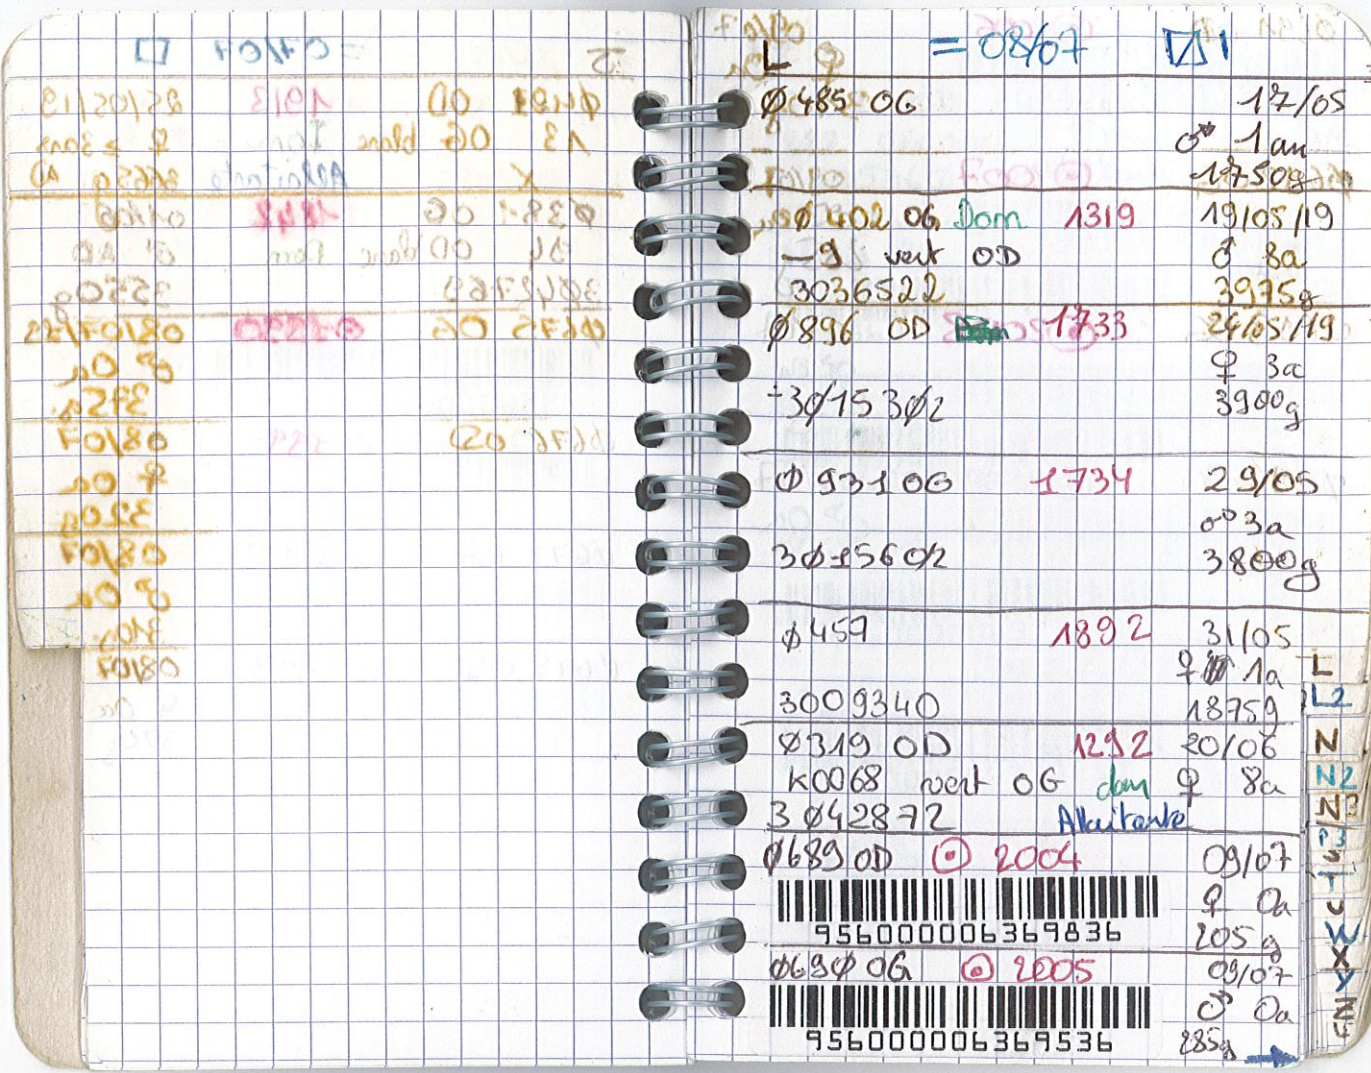 L = 08/07 1
Ø485 OG 17/05
♂ 1an
1750g
Ø402 OG Dom 1319 19/05/19
-9 vert OD ♂ 8a
3036522 3975g
Ø896 OD 1733 24/05/19
♀ 3a
3Ø153Ø2 3900g
Ø931 OG 1734 29/05
♂ 3a
3Ø156Ø2 3800g
Ø459 1892 31/05
♀ 1a
3009340 1875g
Ø319 OD 1292 20/06
K0068 vert OG dom ♀ 8a
3Ø42872 Allaitante
Ø689 OD ⊙ 2004 09/07
♀ 0a
956000006369836
205g
Ø69Ø OG ⊙ 2005 09/07
♂ 0a
956000006369536
285g →
L
L2
N
N2
N3
P3
S
T
U
W
X
Y